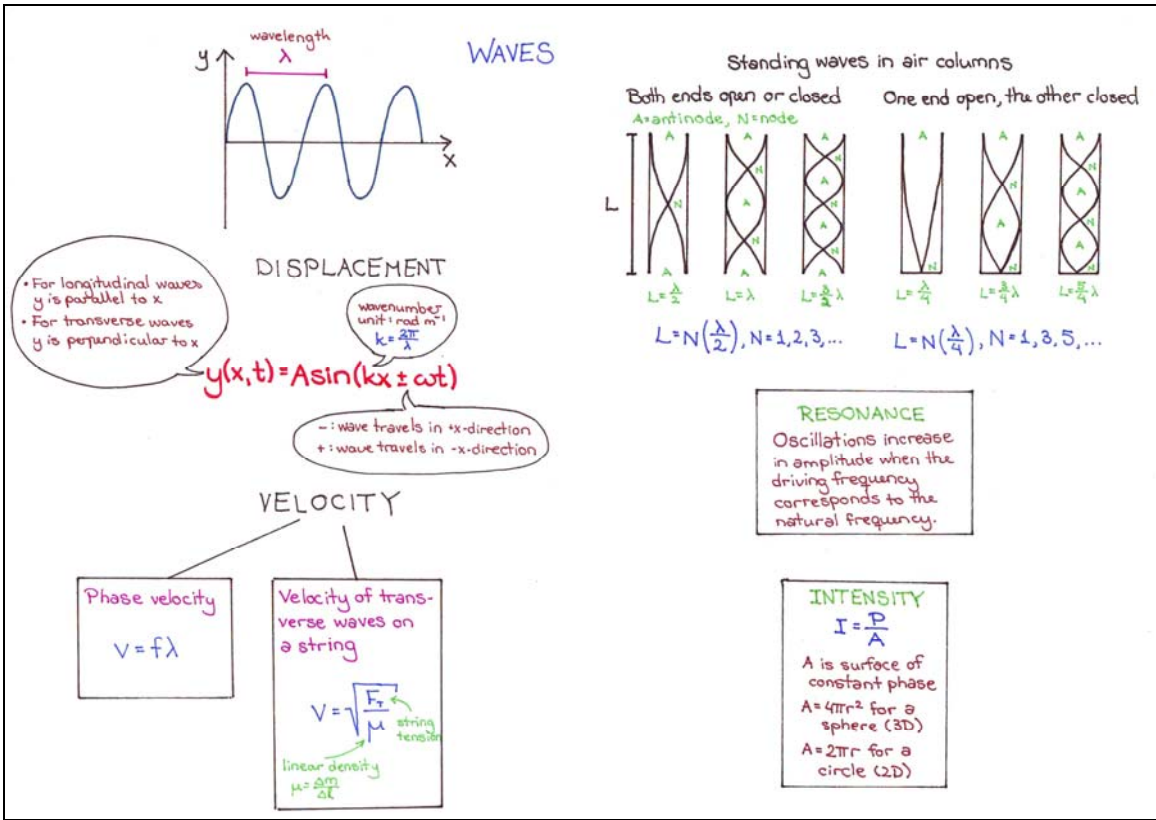 WAVES
wavelength
λ
y
x
DISPLACEMENT
• For longitudinal waves
y is parallel to x
• For transverse waves
y is perpendicular to x
wavenumber
unit: rad m⁻¹
k = 2π/λ
y(x,t) = A sin(kx ± ωt)
- : wave travels in +x-direction
+ : wave travels in -x-direction
VELOCITY
Phase velocity
V = fλ
Velocity of trans-
verse waves on
a string
V = √(F_T/μ)
string
tension
linear density
μ = Δm/Δl
Standing waves in air columns
Both ends open or closed
A = antinode, N = node
L
A
N
A
L = λ/2
A
N
A
N
A
L = λ
A
N
A
N
A
N
A
L = 3/2 λ
L = N(λ/2), N = 1, 2, 3, ...
One end open, the other closed
A
N
L = λ/4
A
N
A
N
L = 3/4 λ
A
N
A
N
A
N
L = 5/4 λ
L = N(λ/4), N = 1, 3, 5, ...
RESONANCE
Oscillations increase
in amplitude when the
driving frequency
corresponds to the
natural frequency.
INTENSITY
I = P/A
A is surface of
constant phase
A = 4πr² for a
sphere (3D)
A = 2πr for a
circle (2D)